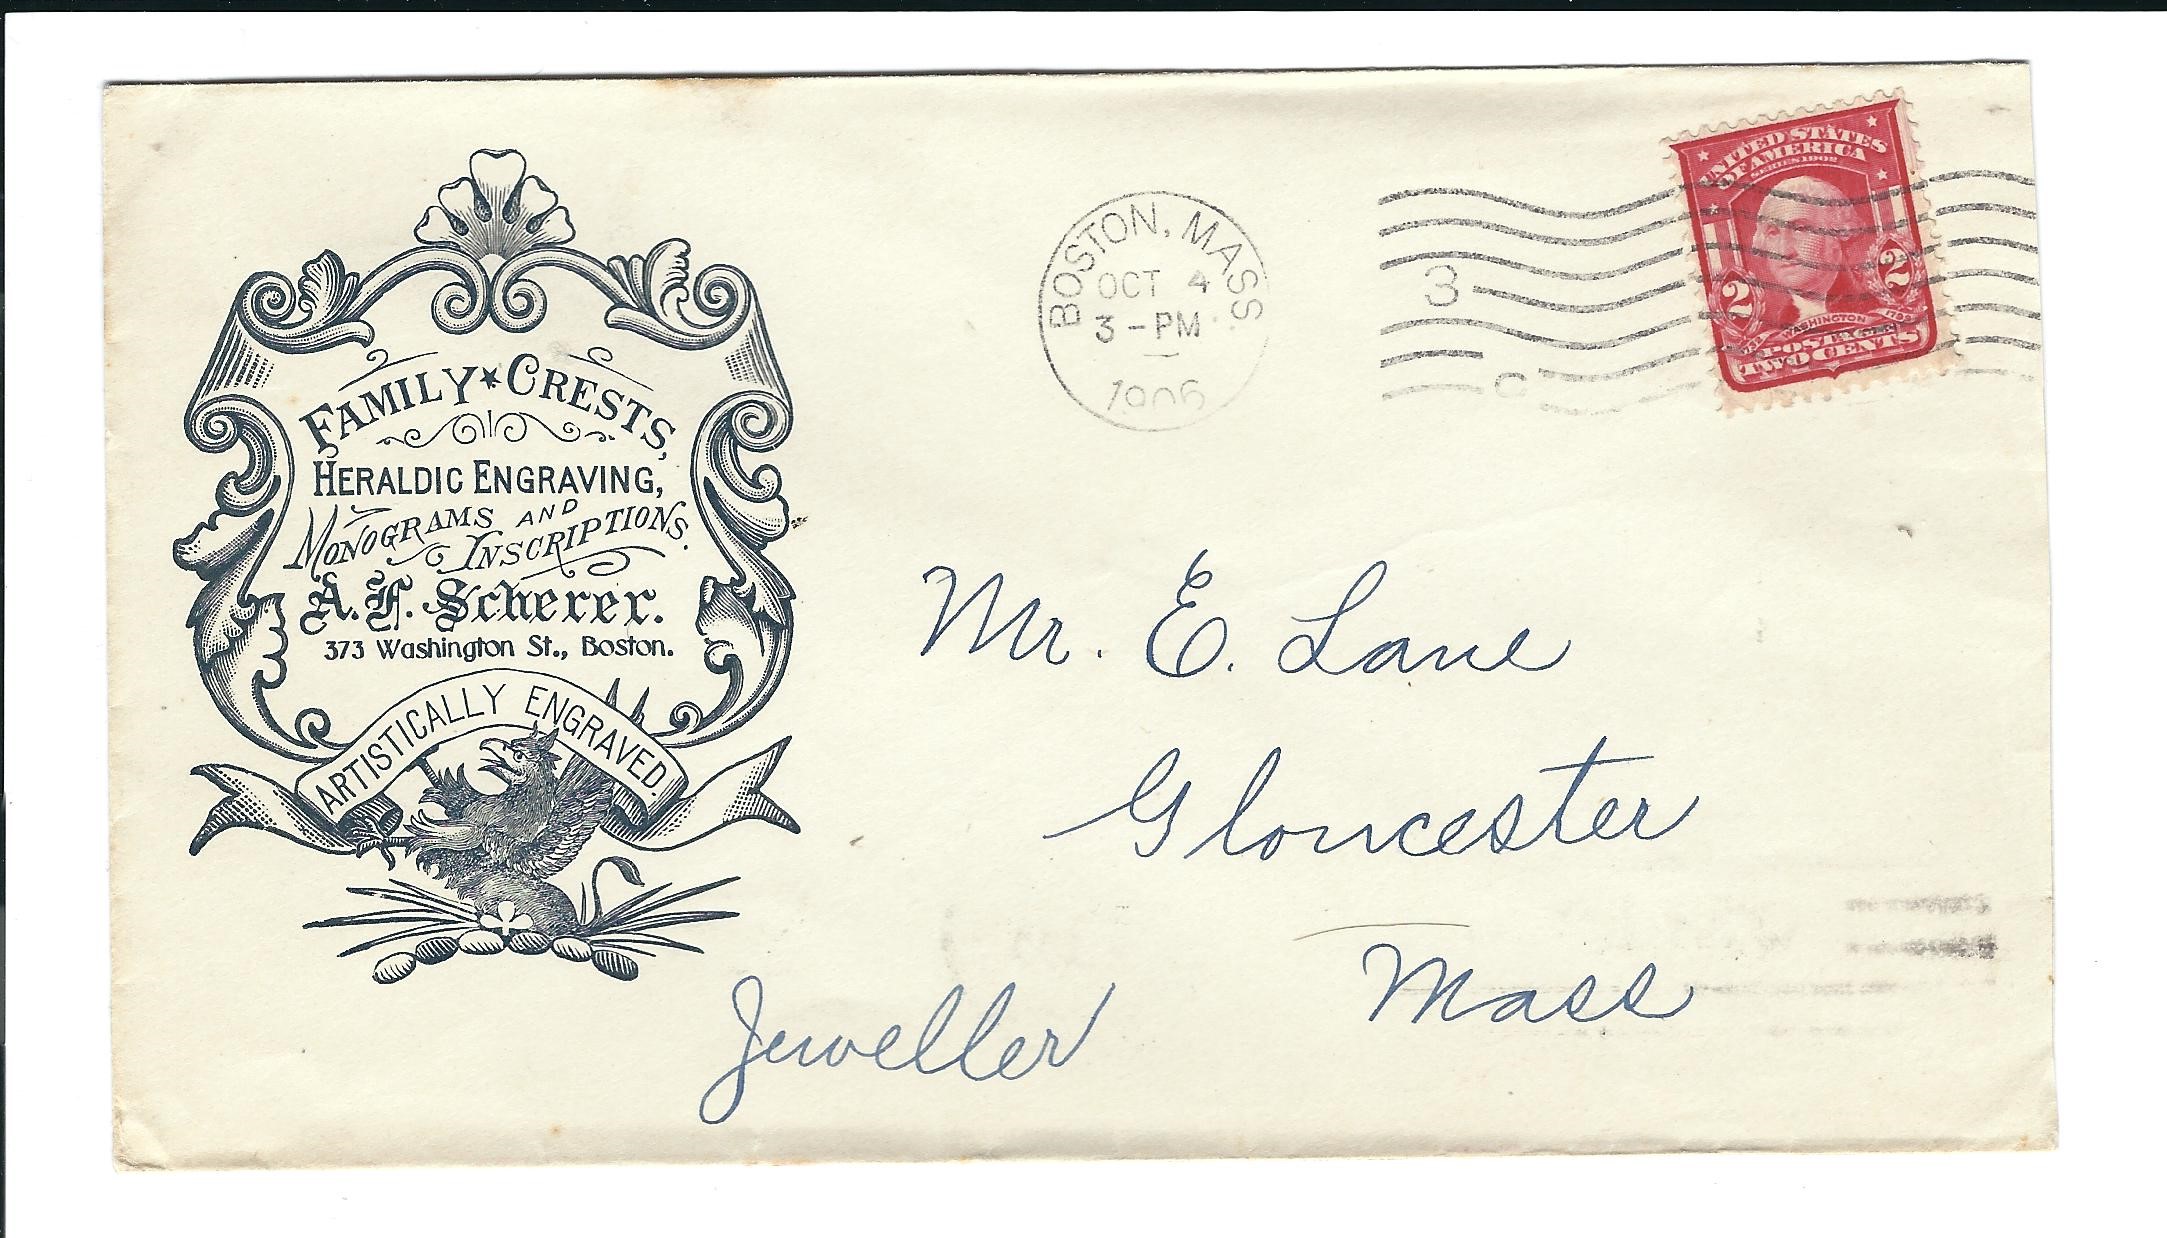 FAMILY★CRESTS,
HERALDIC ENGRAVING,
MONOGRAMS AND
INSCRIPTIONS.
A. F. Scherer.
373 Washington St., Boston.
ARTISTICALLY ENGRAVED.
BOSTON, MASS.
OCT 4
3-PM
1906
3
C
UNITED STATES
OF AMERICA
SERIES 1902
2 2
WASHINGTON
1732 1799
POSTAGE
TWO CENTS
Mr. E. Lane
Gloucester
Mass
Jeweller